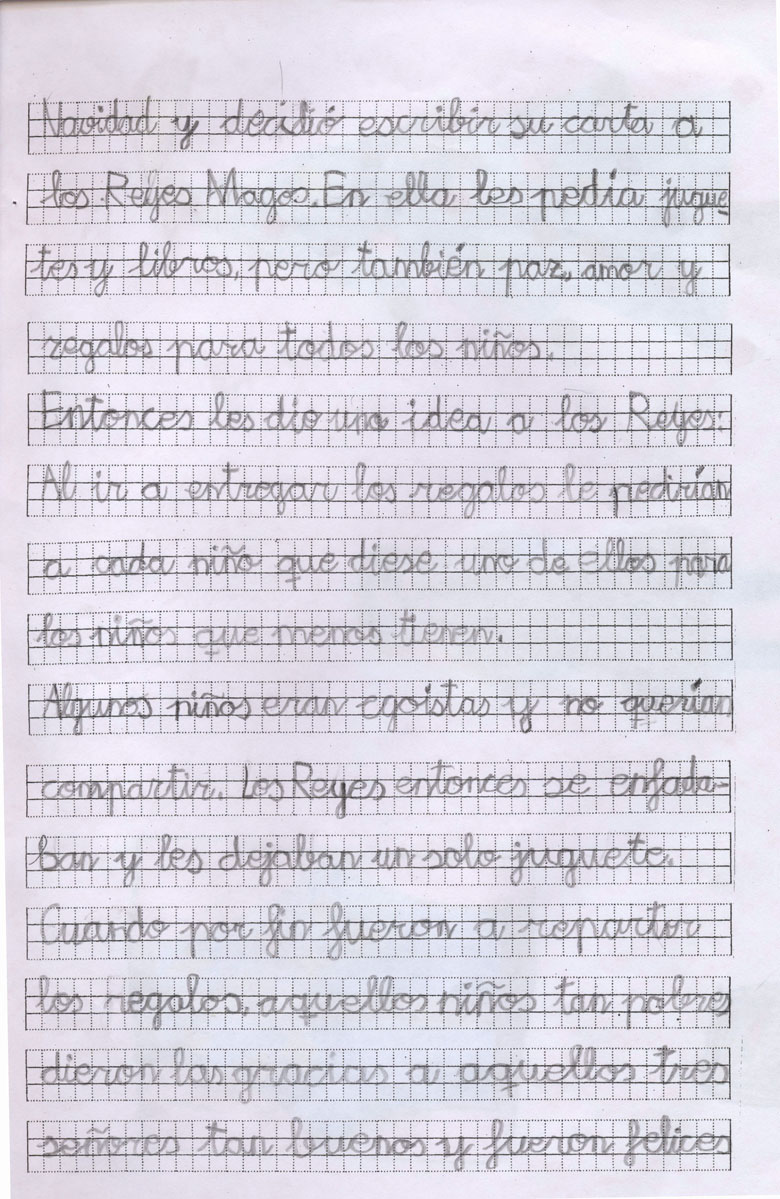 Navidad y decidió escribir su carta a
los Reyes Magos. En ella les pedía jugue
tes y libros, pero también paz, amor y
regalos para todos los niños.
Entonces les dio una idea a los Reyes:
Al ir a entregar los regalos le pedirían
a cada niño que diese uno de ellos para
los niños que menos tienen.
Algunos niños eran egoístas y no querían
compartir. Los Reyes entonces se enfada-
ban y les dejaban un solo juguete.
Cuando por fin fueron a repartir
los regalos, aquellos niños tan pobres
dieron las gracias a aquellos tres
señores tan buenos y fueron felices